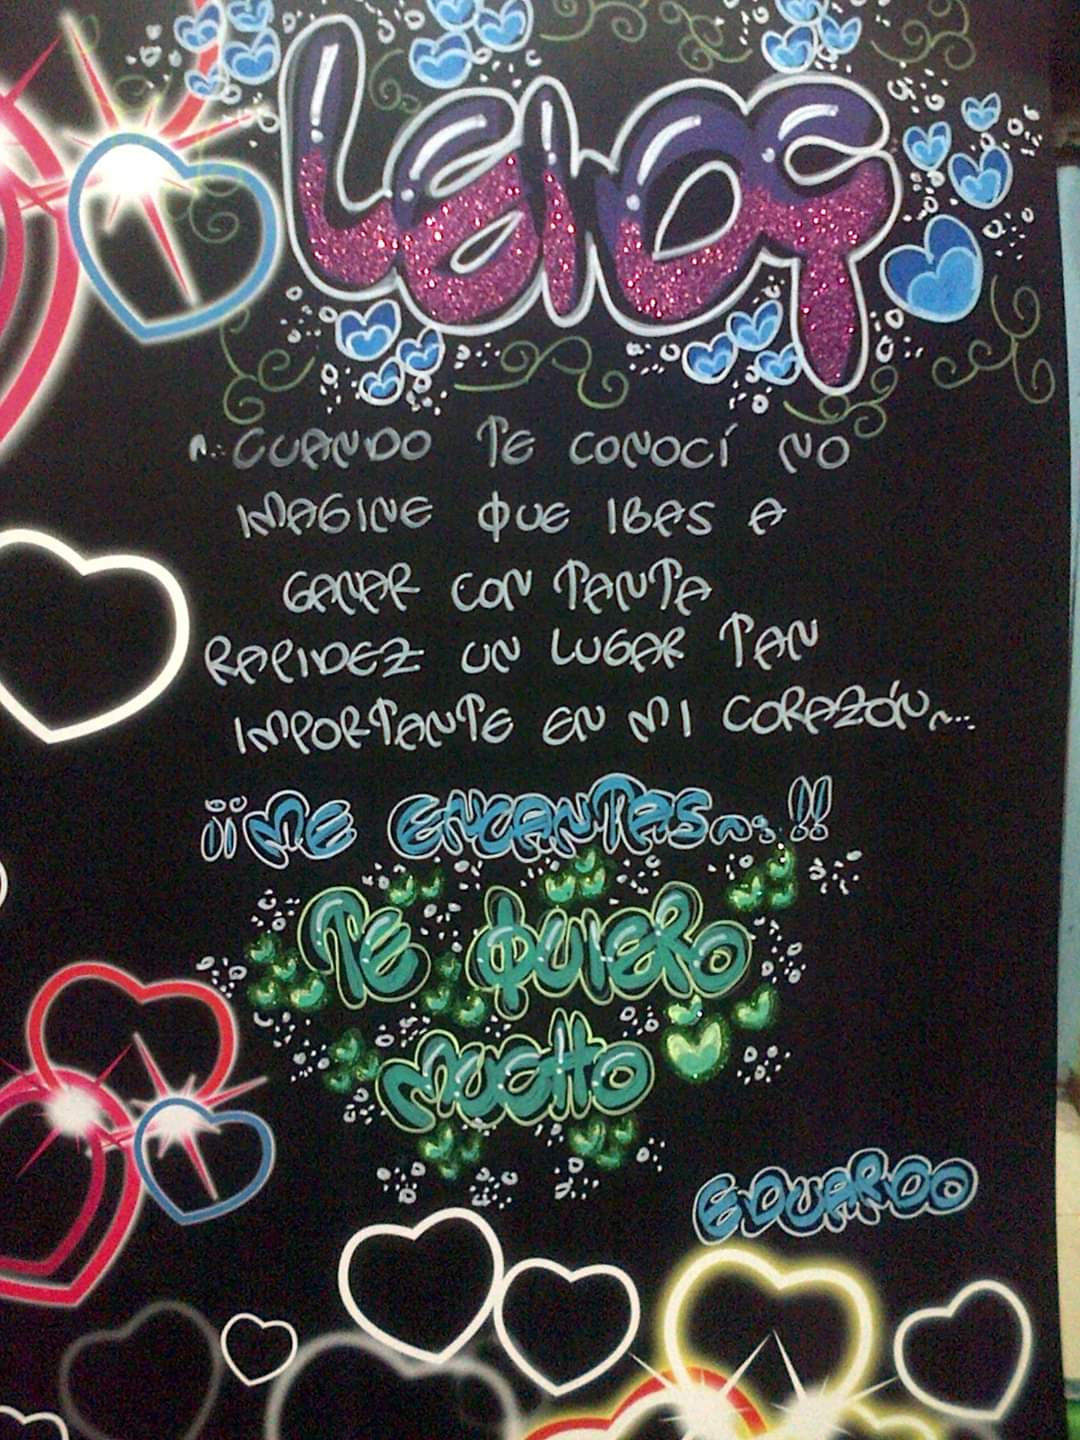 Leidy
CUANDO TE CONOCÍ NO
IMAGINE QUE IBAS A
GANAR CON TANTA
RAPIDEZ UN LUGAR TAN
IMPORTANTE EN MI CORAZÓN...
¡¡ME ENCANTAS...!!
TE QUIERO
MUCHO
EDUARDO